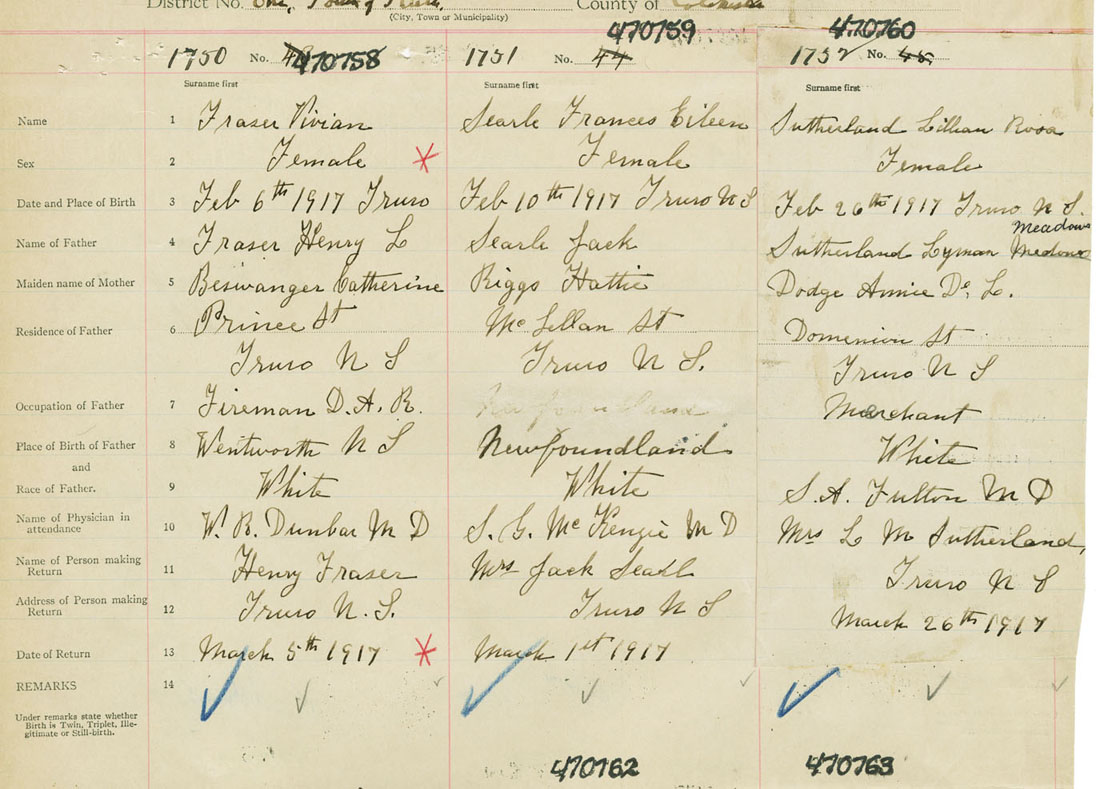 District No. One, Town of
County of Colchester
(City, Town or Municipality)
470759
470760
1750 No. 470758
1751 No. 44
1752 No. 45
Surname first
Surname first
Surname first
Name 1 Fraser Vivian
Searle Frances Eileen
Sutherland Lillian Rosa
Sex 2 Female
Female
Female
Date and Place of Birth 3 Feb 6th 1917 Truro
Feb 10th 1917 Truro N S
Feb 26th 1917 Truro N S.
Meadows
Name of Father 4 Fraser Henry L
Searle Jack
Sutherland Lyman Medows
Maiden name of Mother 5 Beswanger Catherine
Riggs Hattie
Dodge Annie De L.
Residence of Father 6 Prince St
Mc Lellan St
Domenion St
Truro N S
Truro N S.
Truro N S
Occupation of Father 7 Fireman D.A.R.
Newfoundland
Merchant
Place of Birth of Father 8 Wentworth N S
Newfoundland
White
and
Race of Father. 9 White
White
S.A. Fulton M D
Name of Physician in
attendance 10 W. R. Dunbar M D
S. G. McKenzie M D
Mrs L M Sutherland,
Name of Person making
Return 11 Henry Fraser
Mrs Jack Searl
Truro N S
Address of Person making
Return 12 Truro N.S.
Truro N S
March 26th 1917
Date of Return 13 March 5th 1917
March 1st 1917
REMARKS 14
Under remarks state whether
Birth is Twin, Triplet, Ille-
gitimate or Still-birth.
470762
470763